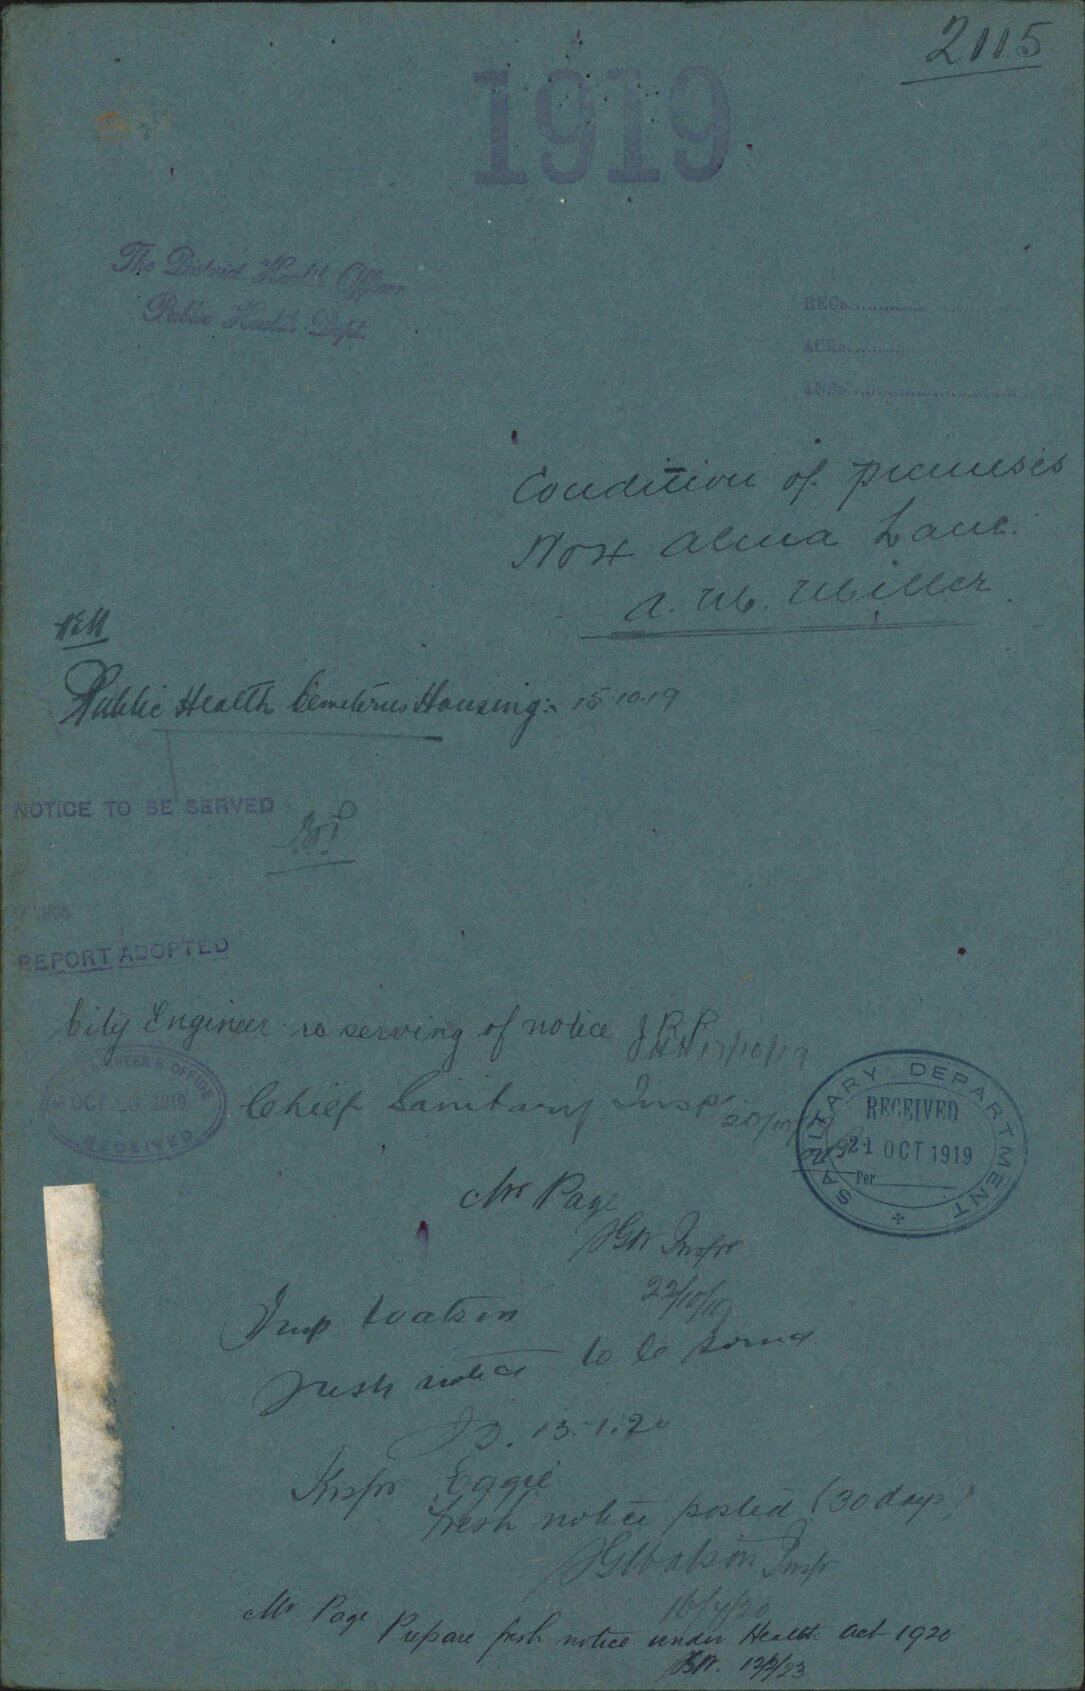 2115
1919
The District Health Officer
Public Health Dept.
REC
ACK
ANS
Condition of premises
No 4 Alma Lane.
A. M. Miller
Public Health Cemeteries Housing: 15.10.19
NOTICE TO BE SERVED
REPORT ADOPTED
City Engineer re serving of notice 17/10/19
OCT 1919
RECEIVED
Chief Sanitary Inspr 20/10
SANITARY DEPARTMENT
RECEIVED
21 OCT 1919
Per
Mr Page
Inspr
22/10/19
Insp Watson
Fresh notice to be served
13.1.20
Inspr Eggie
Fresh notice posted (30 days)
Watson Inspr
Mr. Page Prepare fresh notice under Health Act 1920
12/2/23